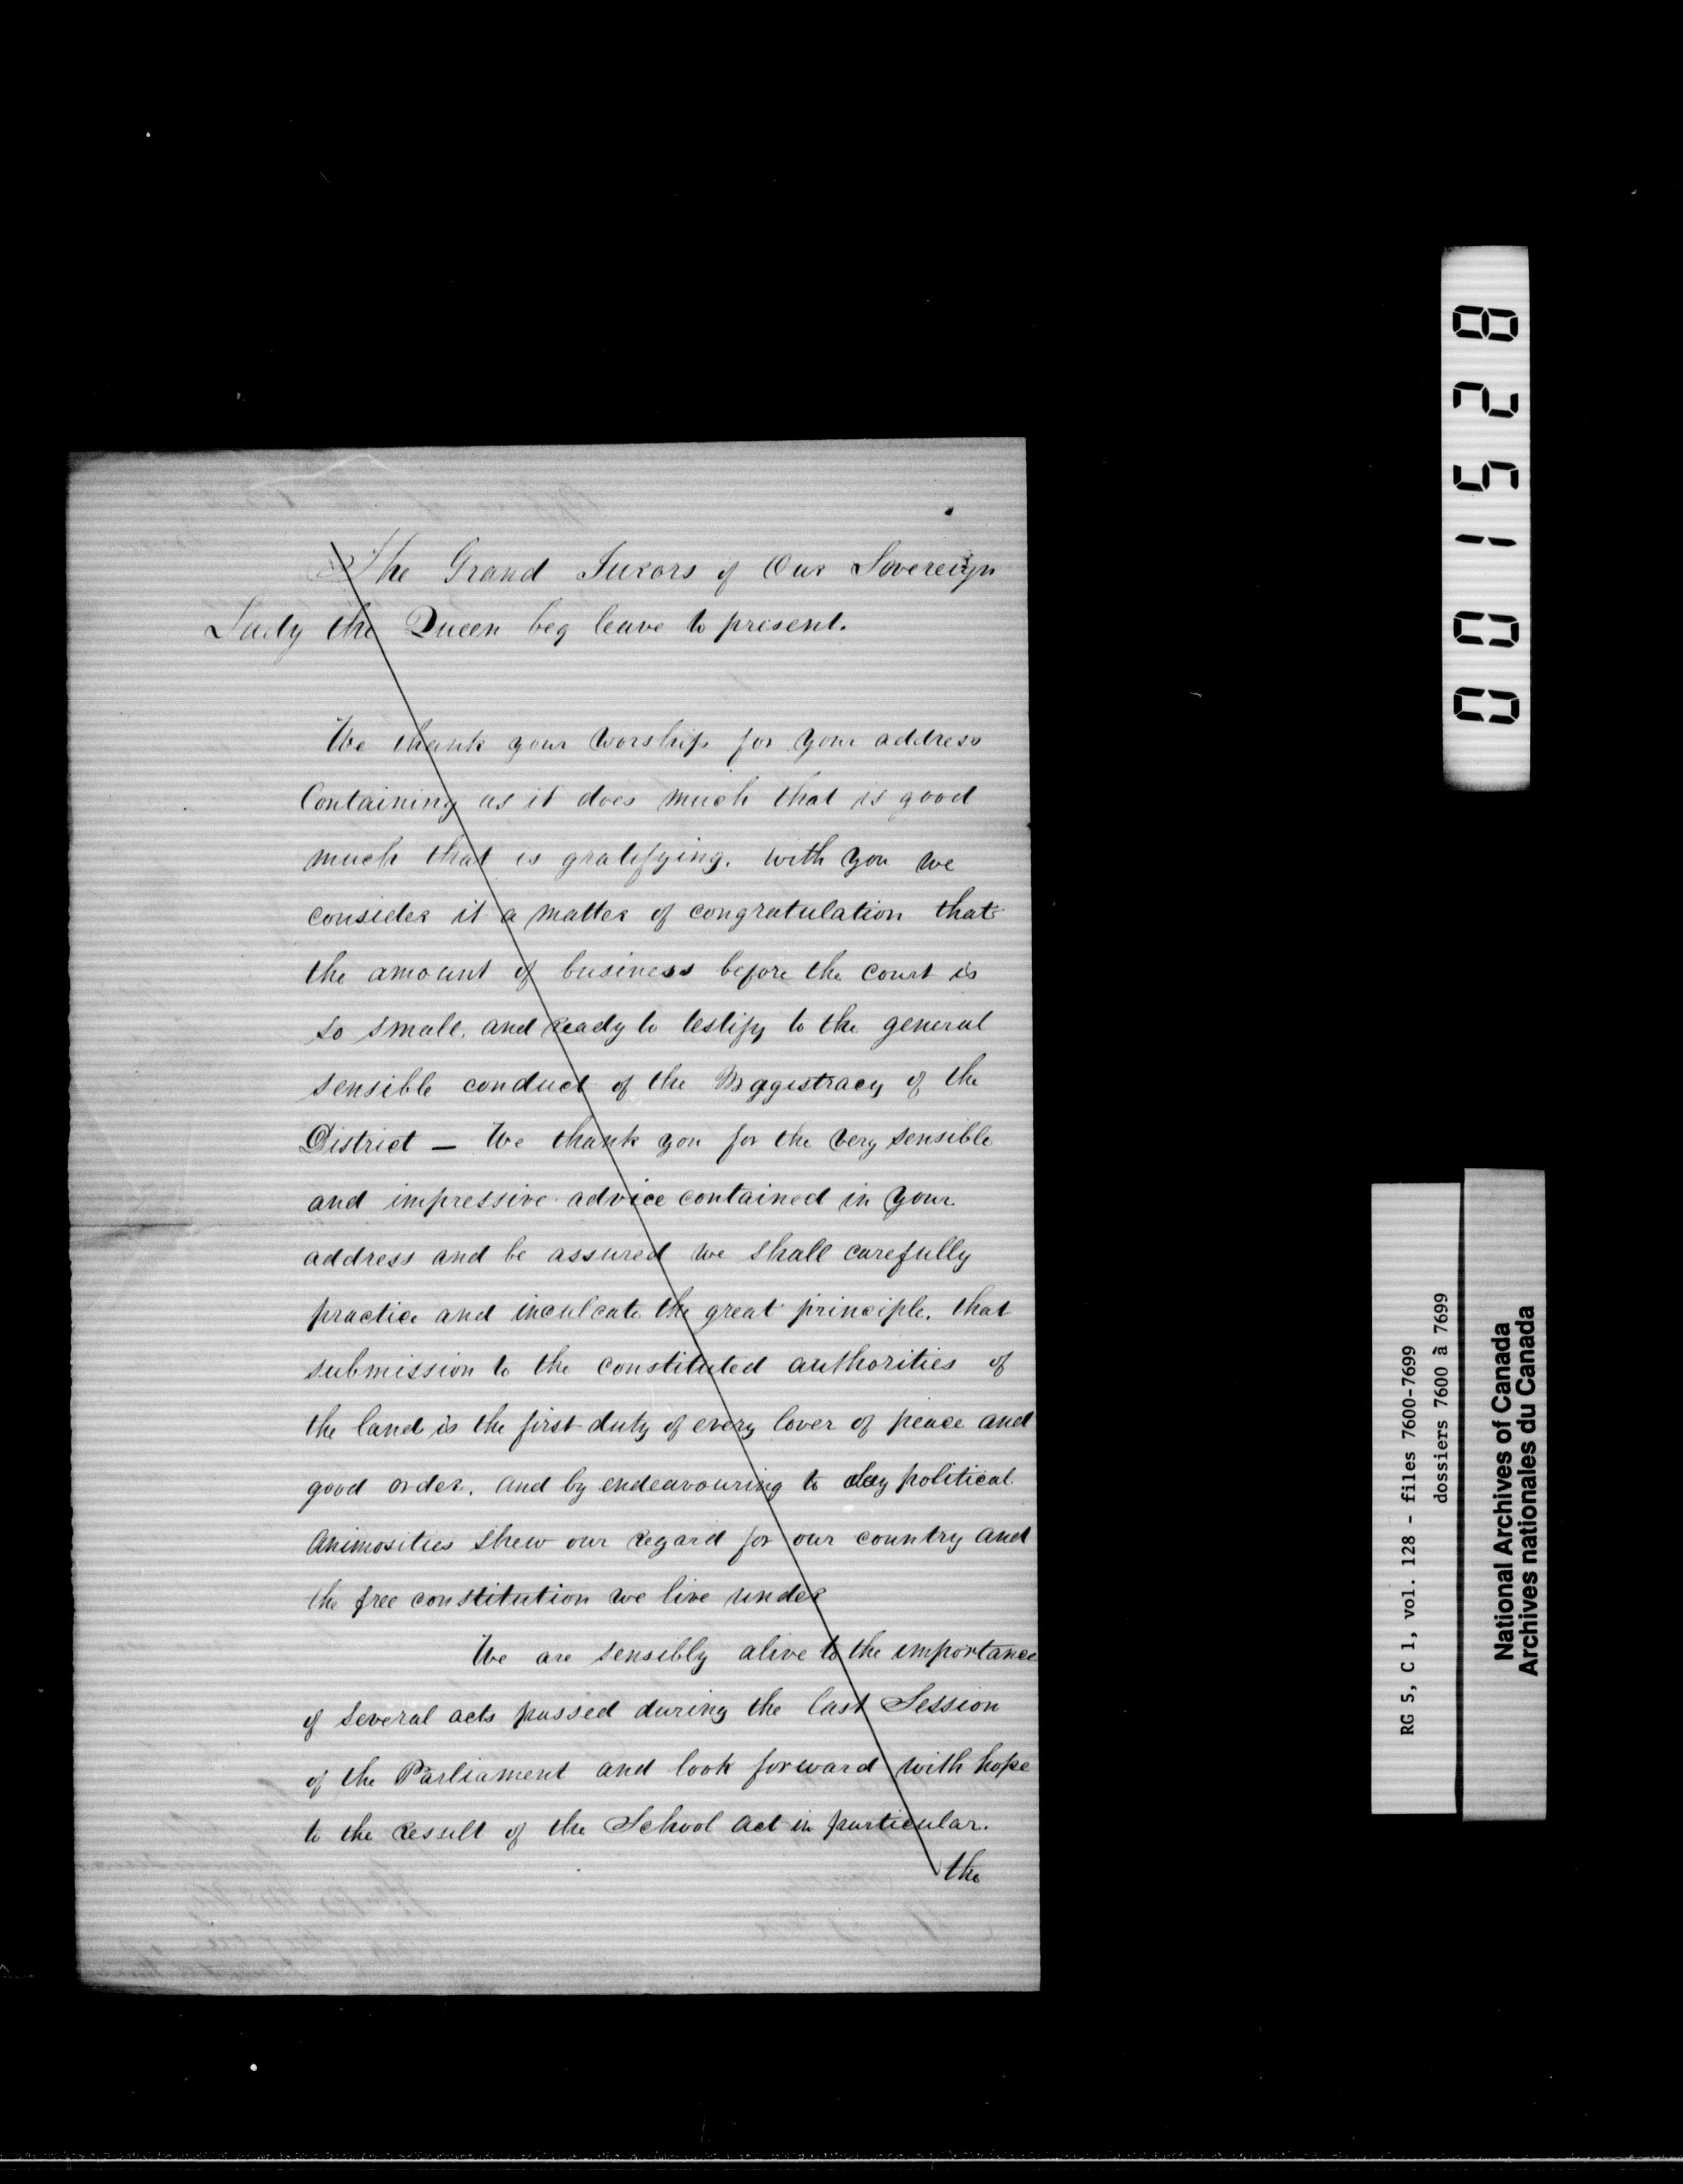 The Grand Jurors of Our Sovereign
Lady the Queen beg leave to present.
We thank your Worship for your address
Containing as it does much that is good
much that is gratifying. With you we
consider it a matter of congratulation that
the amount of business before the court is
so small, and ready to testify to the general
sensible conduct of the Magistracy of the
District — We thank you for the very sensible
and impressive advice contained in your
address and be assured we shall carefully
practice and inculcate the great principle, that
submission to the constituted authorities of
the land is the first duty of every lover of peace and
good order. And by endeavouring to political
Animosities shew our regard for our country and
the free constitution we live under
We are sensibly alive to the importance
of several acts passed during the last Session
of the Parliament and look forward with hope
to the result of the School Act in particular.
the
001528
RG 5, C 1, vol. 128 - files 7600-7699
dossiers 7600 à 7699
National Archives of Canada
Archives nationales du Canada